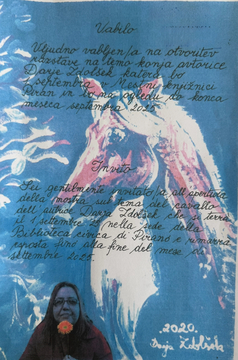 Vabilo
Vljudno vabljen/a na otvoritev
razstave na temo konja avtorice
Darje Zdolšek katera bo
septembra v Mestni knjižnici
Piran in bo na ogledu do konca
meseca septembra 2025.
Invito
Sei gentilmente invitato/a all apertura
della mostra sul tema del cavallo
dell autrice Darja Zdolšek che si terra
il 1 settembre nella sede della
Biblioteca civica di Pirano e rimarra
esposta fino alla fine del mese di
settembre 2025.
2020.
Darja Zdolšek